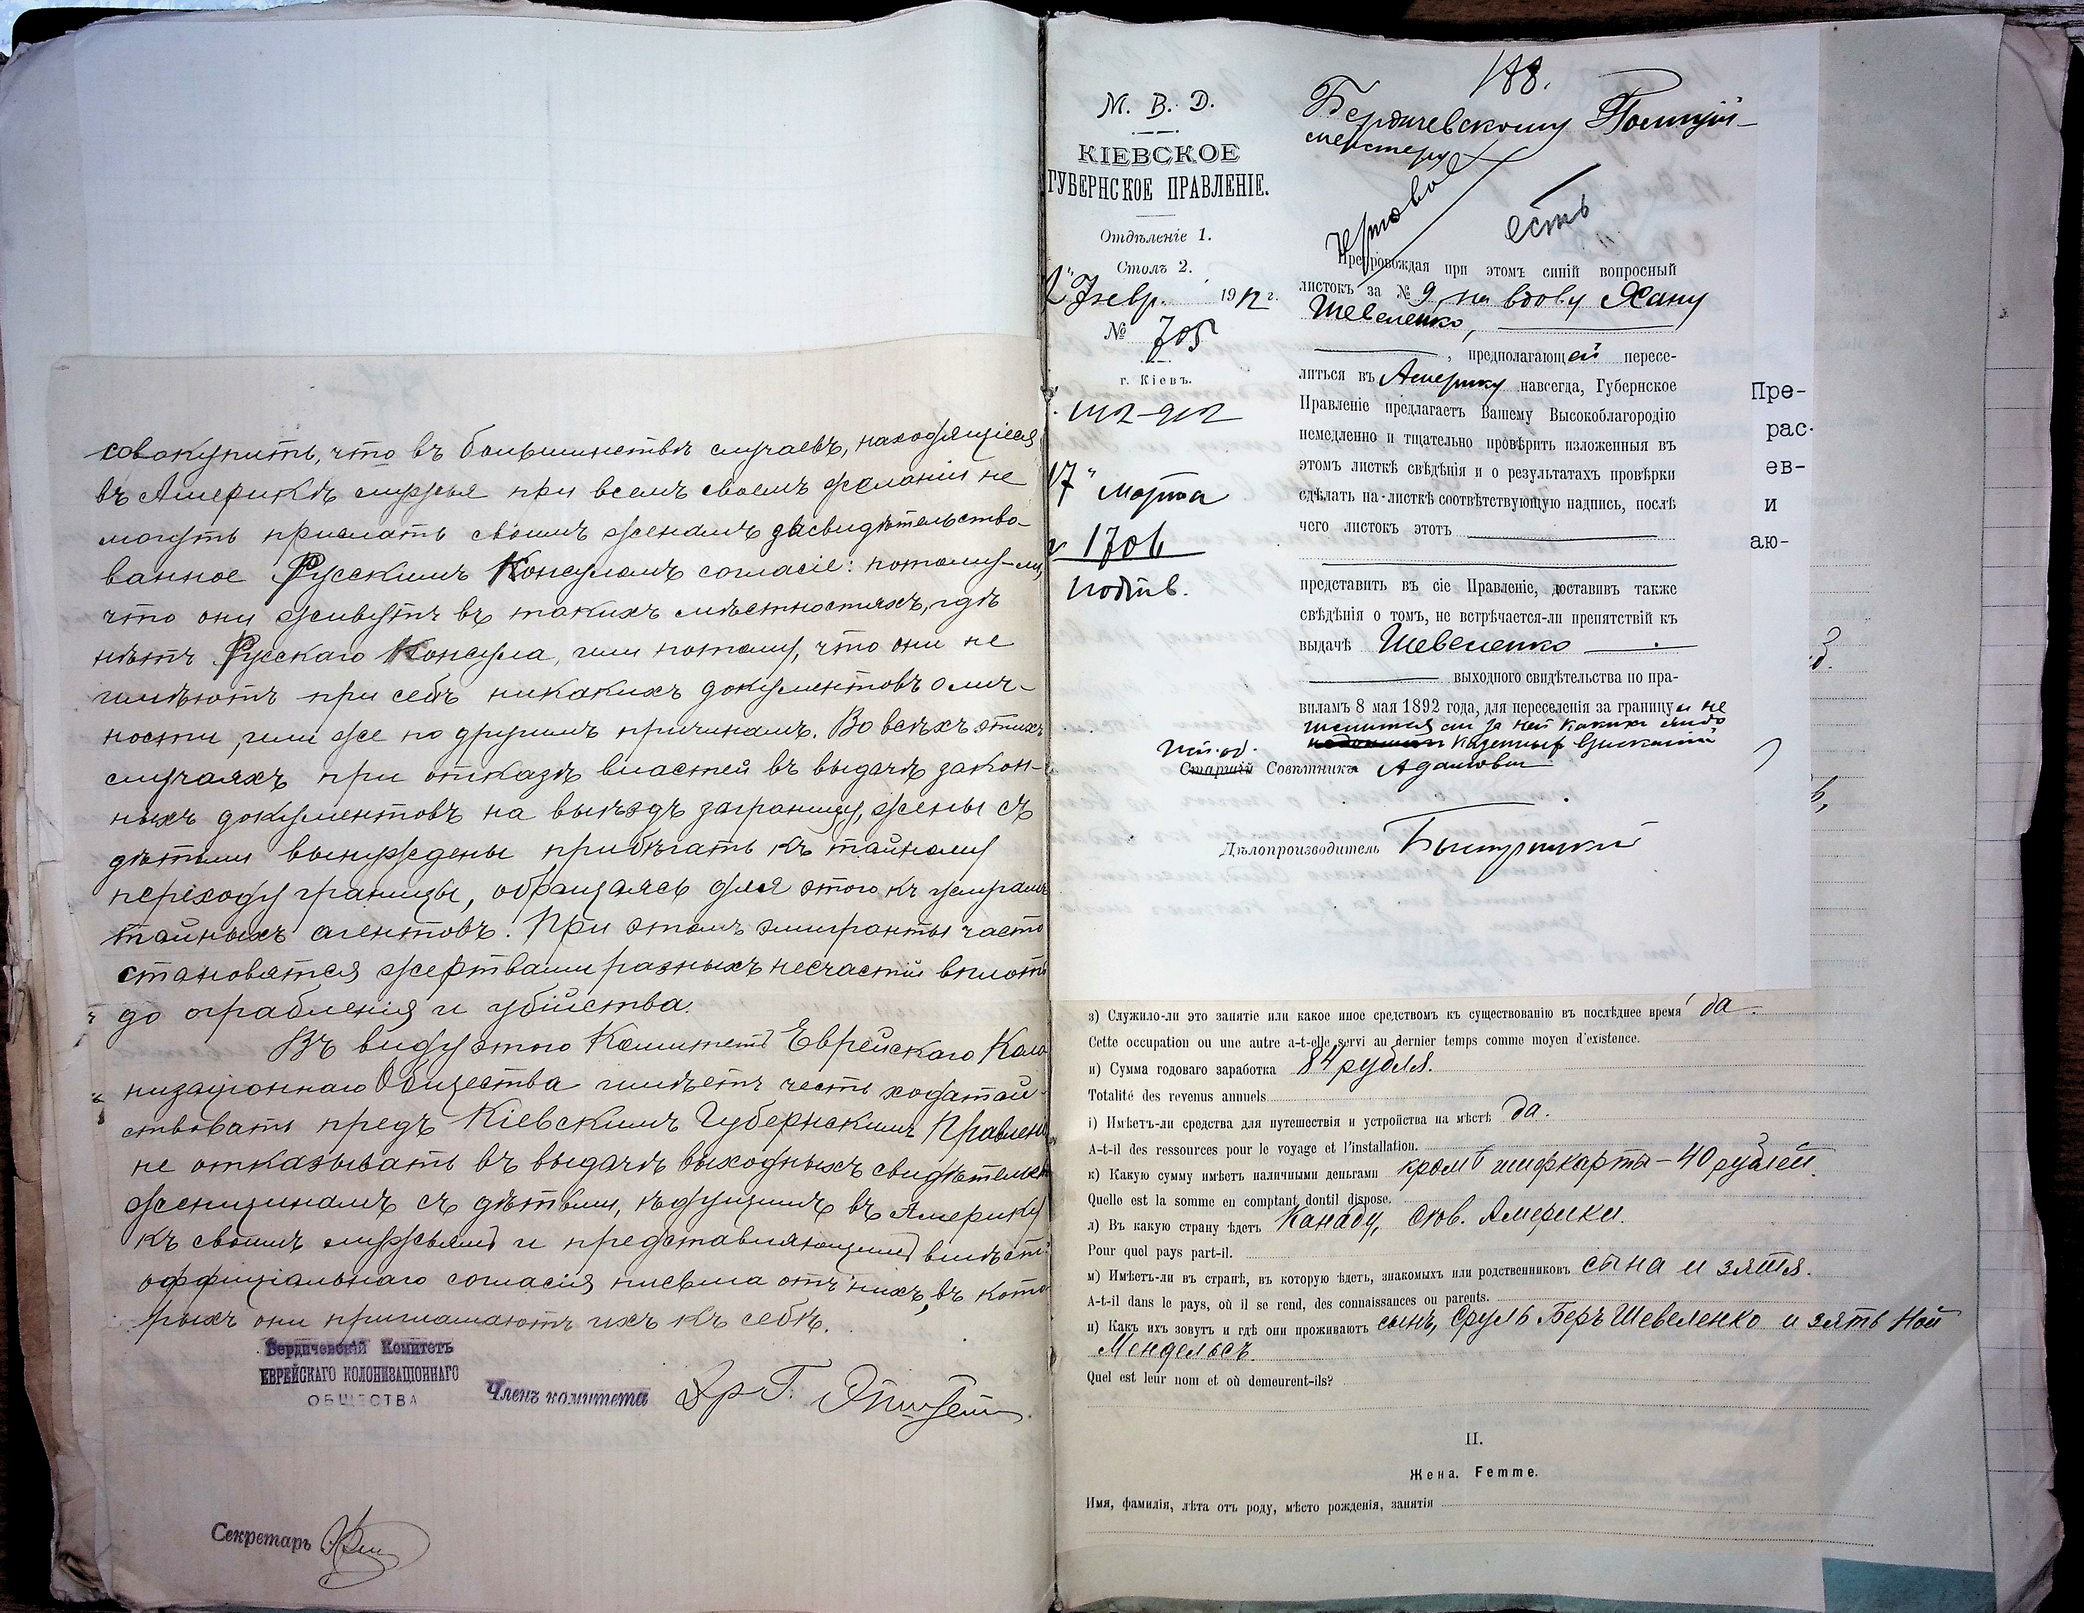 совокупить, что въ большинствѣ случаевъ, находящіеся
въ Америкѣ мужья при всемъ своемъ желаніи не
могутъ прислать своимъ женамъ засвидѣтельство-
ванное Русскимъ Консуломъ согласіе: потому-ли,
что они живутъ въ такихъ мѣстностяхъ, гдѣ
нѣтъ Русскаго Консула, или потому, что они не
имѣютъ при себѣ никакихъ документовъ о лич-
ности, или же по другимъ причинамъ. Во всѣхъ этихъ
случаяхъ при отказѣ властей въ выдачѣ закон-
ныхъ документовъ на выѣздъ заграницу, жены съ
дѣтьми вынуждены прибѣгать къ тайному
переходу границы, обращаясь для этого къ услугамъ
тайныхъ агентовъ. При этомъ эмигранты часто
становятся жертвами разныхъ несчастій вплоть
до ограбленія и убійства.
Въ виду этого Комитетъ Еврейскаго Коло
низаціоннаго Общества имѣетъ честь ходатай
ствовать предъ Кіевскимъ Губернскимъ Правлені
не отказывать въ выдачѣ выходныхъ свидѣтельст
женщинамъ съ дѣтьми, ѣдущимъ въ Америку
къ своимъ мужьямъ и представляющимъ вмѣсто
оффиціальнаго согласія письма отъ нихъ, въ кото
рыхъ они приглашаютъ ихъ къ себѣ.
Бердичевскій Комитетъ
ЕВРЕЙСКАГО КОЛОНИЗАЦІОННАГО
ОБЩЕСТВА
Членъ комитета Др Г.
Секретарь
188.
М. В. Д.
КІЕВСКОЕ
ГУБЕРНСКОЕ ПРАВЛЕНІЕ.
Отдѣленіе 1.
Столъ 2.
2" Февр. 1912 г.
№ 705
г. Кіевъ.
17" марта
1706
Бердичевскому Полицій-
мейстеру
есть
Препровождая при этомъ синій вопросный
листокъ за № 9 на вдову Хану
Шевеленко,
, предполагающей пересе-
литься въ Америку навсегда, Губернское
Правленіе предлагаетъ Вашему Высокоблагородію
немедленно и тщательно провѣрить изложенныя въ
этомъ листкѣ свѣдѣнія и о результатахъ провѣрки
сдѣлать на-листкѣ соотвѣтствующую надпись, послѣ
чего листокъ этотъ
представить въ сіе Правленіе, доставивъ также
свѣдѣнія о томъ, не встрѣчается-ли препятствій къ
выдачѣ Шевеленко
выходного свидѣтельства по пра-
виламъ 8 мая 1892 года, для переселенія за границу и не
числится ли за ней какихъ либо
казенныхъ взысканій
Исп. об.
Старшій Совѣтника Адамович
Дѣлопроизводитель
Пре-
рас-
ев-
и
аю-
з) Служило-ли это занятіе или какое иное средствомъ къ существованію въ послѣднее время да.
Cette occupation ou une autre a-t-elle servi au dernier temps comme moyen d'existence.
и) Сумма годоваго заработка 84 рубля.
Totalité des revenus annuels
і) Имѣетъ-ли средства для путешествія и устройства на мѣстѣ да.
A-t-il des ressources pour le voyage et l'installation.
к) Какую сумму имѣетъ наличными деньгами кромѣ шифкарты – 40 рублей.
Quelle est la somme en comptant dontil dispose.
л) Въ какую страну ѣдетъ Канаду, Сѣв. Америки.
Pour quel pays part-il.
м) Имѣетъ-ли въ странѣ, въ которую ѣдетъ, знакомыхъ или родственниковъ сына и зятя.
A-t-il dans le pays, où il se rend, des connaissances ou parents.
н) Какъ ихъ зовутъ и гдѣ они проживаютъ сынъ, Сруль Беръ Шевеленко и зять Ной
Мендельсъ.
Quel est leur nom et où demeurent-ils?
II.
Жена. Femme.
Имя, фамилія, лѣта отъ роду, мѣсто рожденія, занятія